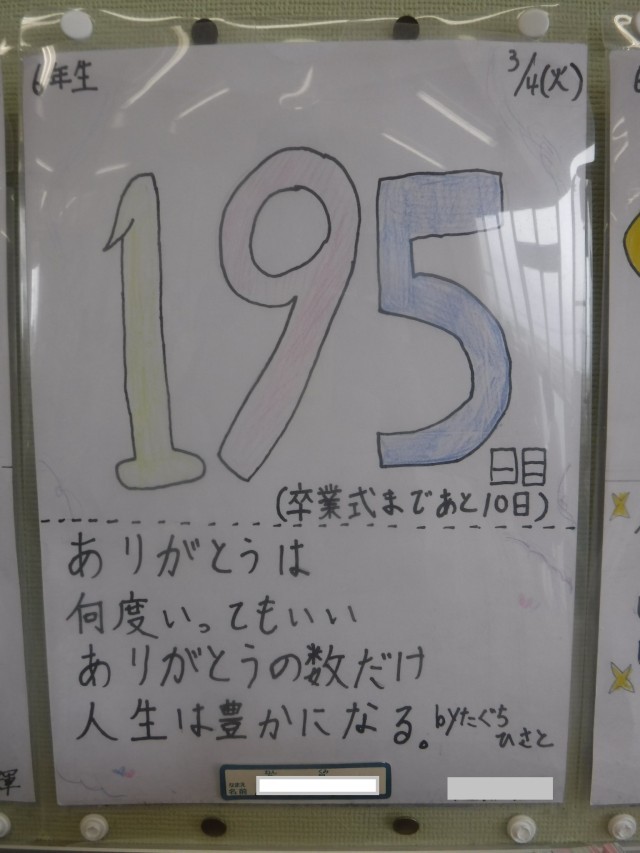 6年生
3/4(火)
195
日目
(卒業式まであと10日)
ありがとうは
何度いってもいい
ありがとうの数だけ
人生は豊かになる。byたぐち
ひさと